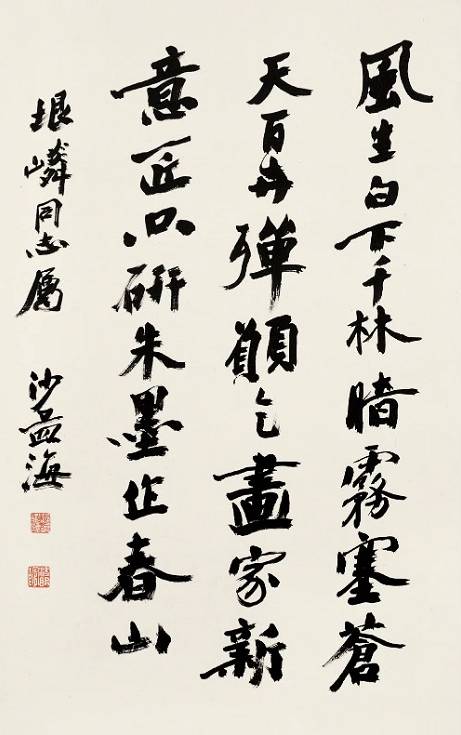 風生白下千林暗霧塞蒼
天百卉殫願乞畫家新
意匠只研朱墨作春山
垠嶙同志属 沙孟海